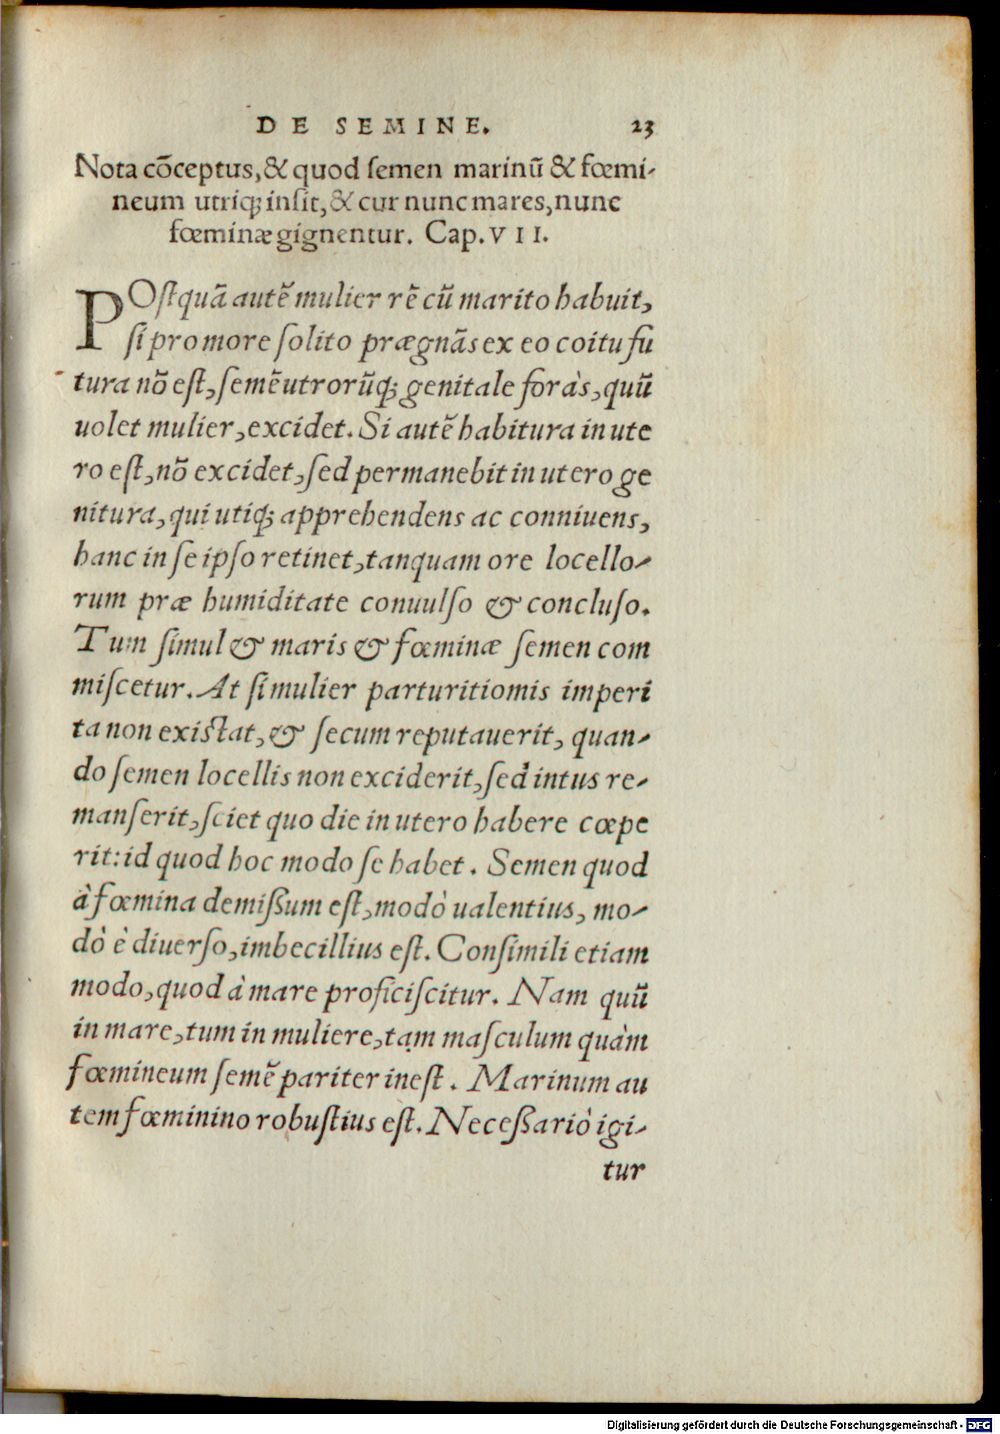 DE SEMINE. 23
Nota cōceptus, & quod ſemen marinũ & fœmi-
neum utriq; inſit, & cur nunc mares, nunc
fœminæ gignentur. Cap. VII.
POſtquā autē mulier rē cū marito habuit,
ſi pro more ſolito prægnās ex eo coitu fu
tura nō eſt, ſemē utrorūq; genitale foràs, quū
uolet mulier, excidet. Si autē habitura in ute
ro eſt, nō excidet, ſed permanebit in utero ge
nitura, qui utiq; apprehendens ac conniuens,
hanc in ſe ipſo retinet, tanquam ore locello-
rum præ humiditate conuulſo & concluſo.
Tum ſimul & maris & fœminæ ſemen com
miſcetur. At ſi mulier parturitiomis imperi
ta non exiſtat, & ſecum reputauerit, quan-
do ſemen locellis non exciderit, ſed intus re-
manſerit, ſciet quo die in utero habere cœpe
rit: id quod hoc modo ſe habet. Semen quod
à fœmina demiſſum eſt, modò ualentius, mo-
dò è diuerſo, imbecillius eſt. Conſimili etiam
modo, quod à mare proficiſcitur. Nam quū
in mare, tum in muliere, tam maſculum quàm
fœmineum ſemē pariter ineſt. Marinum au
tem fœminino robuſtius eſt. Neceſſariò igi-
tur
Digitalisierung gefördert durch die Deutsche Forschungsgemeinschaft - DFG